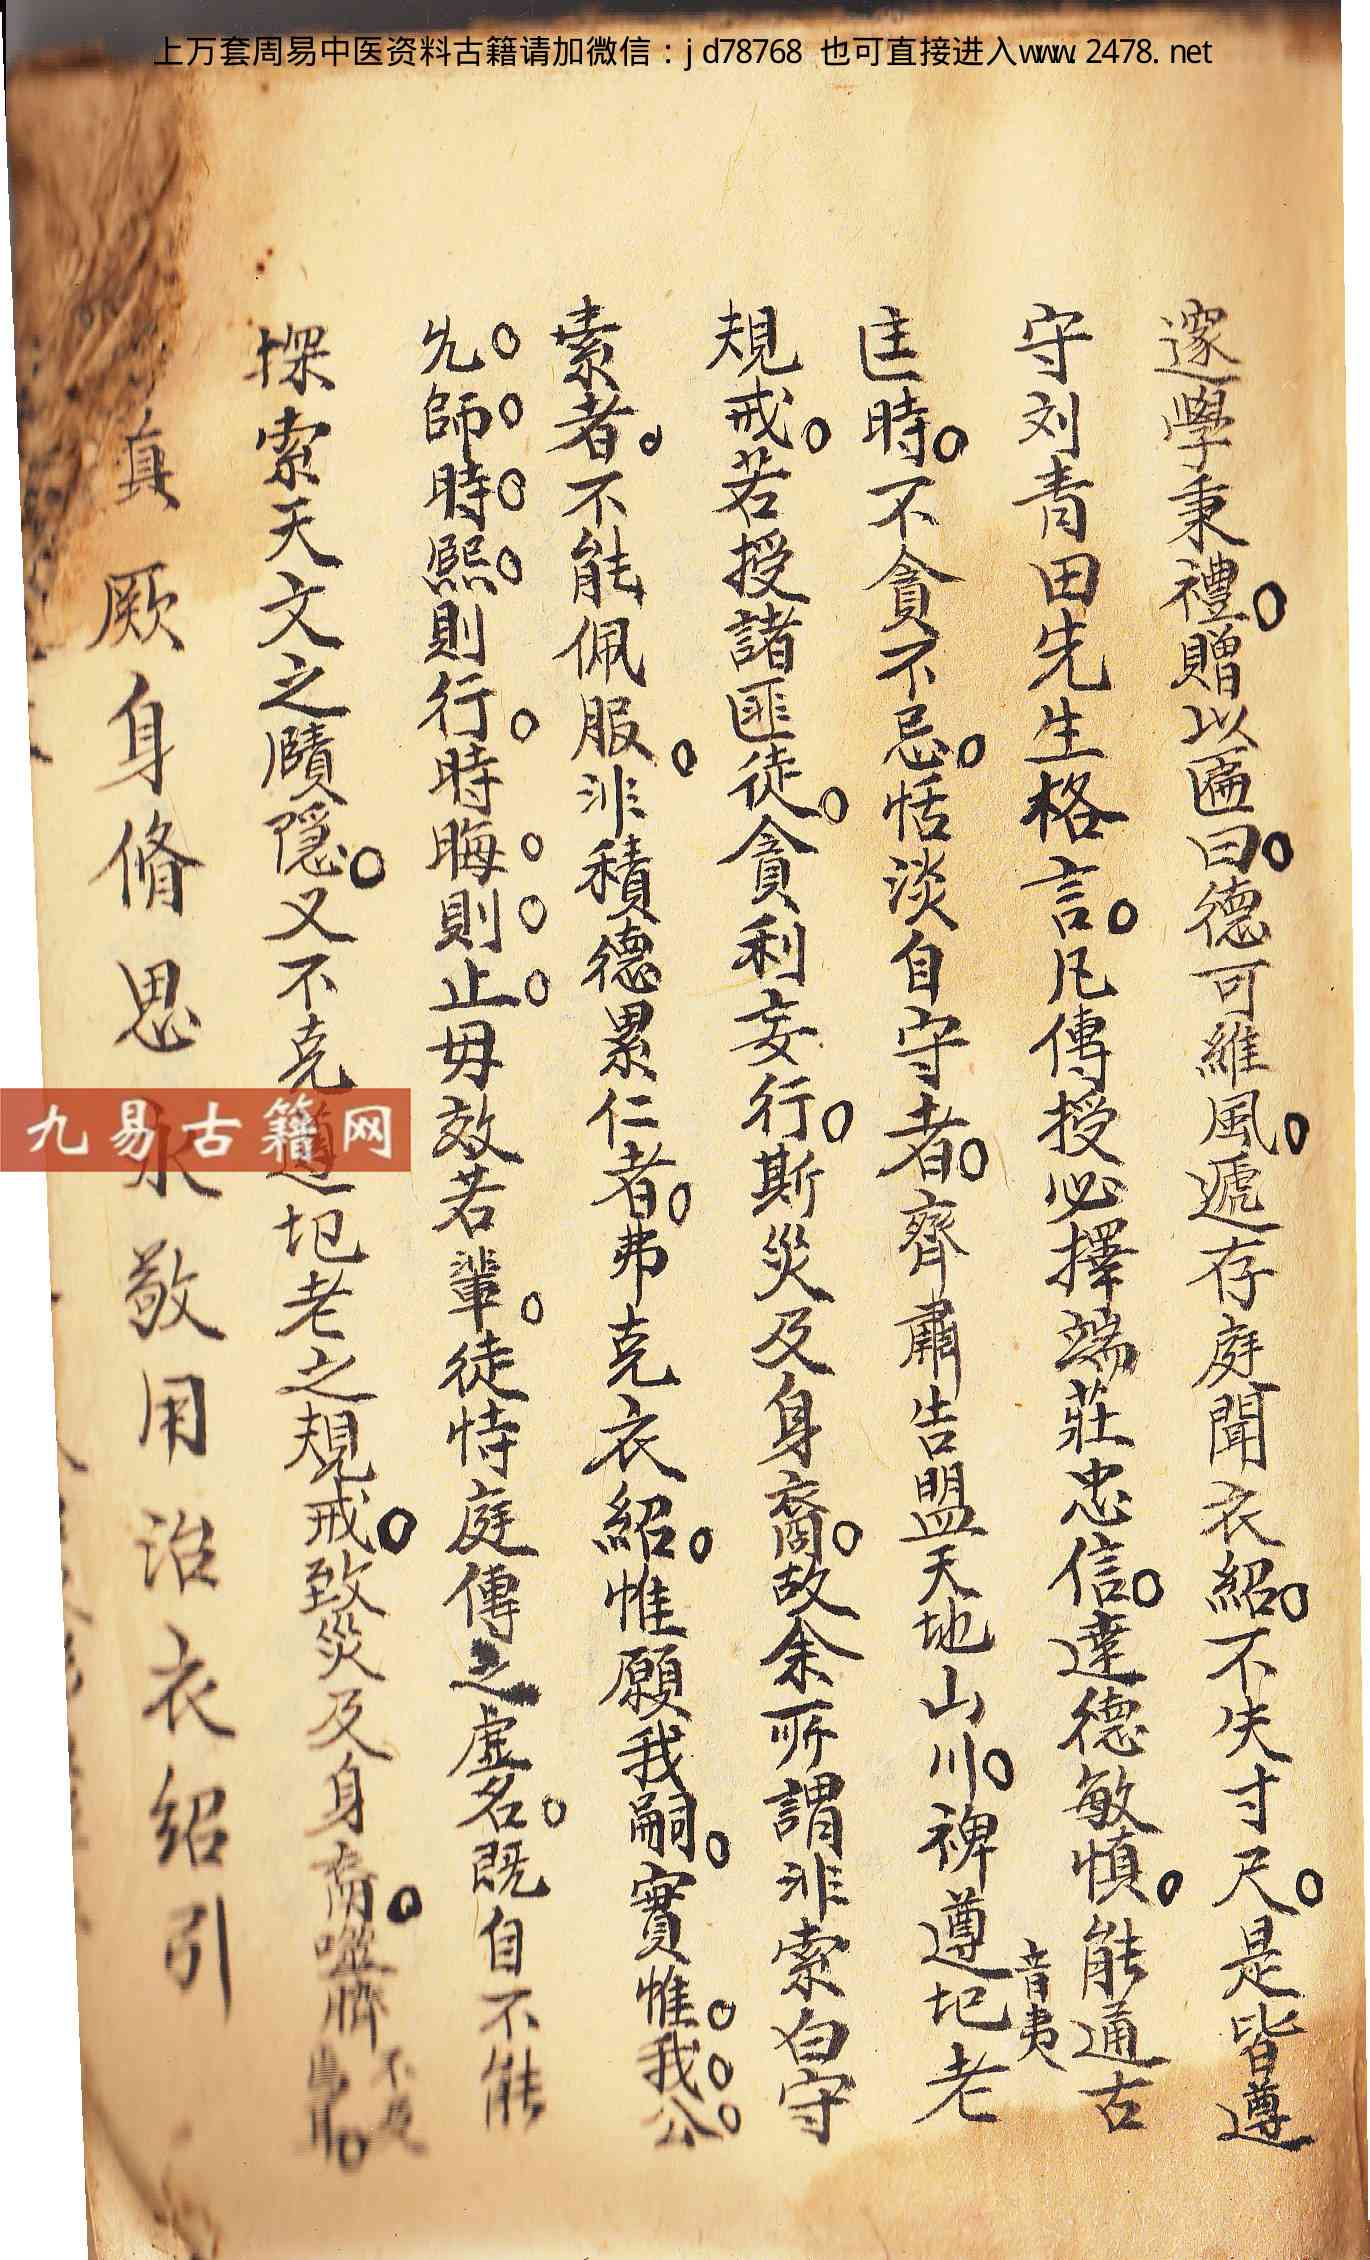 上万套周易中医资料古籍请加微信：jd78768 也可直接进入www.2478.net
邃學秉禮。贈以匾曰。德可維風。遞存庭聞衣紹。不失寸尺。是皆遵
守刘青田先生格言。凡傳授必擇端莊忠信。達德敏慎。能通古
音夷
匡時。不貪不忌。恬淡自守者。齊肅告盟天地山川。禆遵圯老
規戒。若授諸匪徒。貪利妄行。斯災及身裔。故余所謂非索白守
素者。不能佩服。非積德累仁者。弗克衣紹。惟願我嗣。實惟。我。公。
先。師。時。熙。則行。時晦。則。止。毋效若輩。徒恃庭傳之虛名。既自不能
探索天文之賾隱。又不克遵圯老之規戒。致災及身裔。噬臍不及
真厥身脩思永敬用治衣紹引
九易古籍网